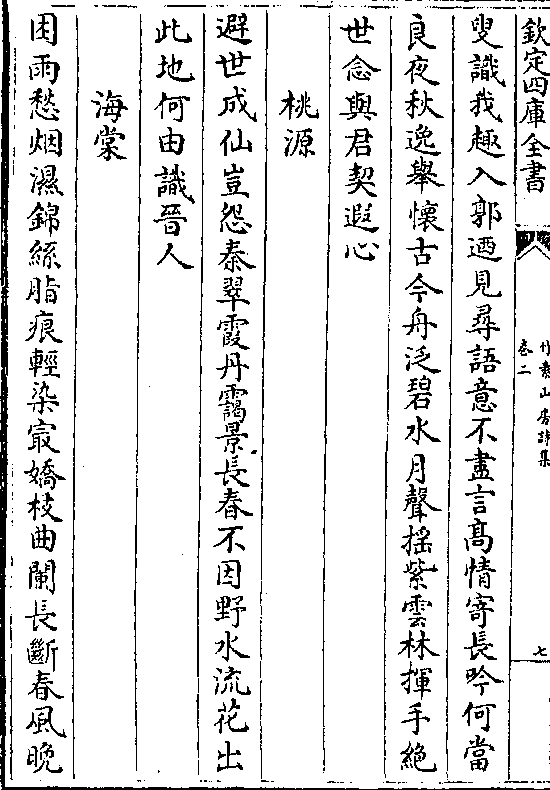 欽定四庫全書
竹素山房詩集
卷二
七
叟識我趣入郭迺見尋語意不盡言髙情寄長吟何當
良夜秋逸舉懷古今舟泛碧水月聲揺紫雲林揮手絶
世念與君契遐心
桃源
避世成仙豈怨秦翠霞丹靄景長春不因野水流花出
此地何由識晉人
海棠
困雨愁烟濕錦絲脂痕輕染㝡嬌枝曲闌長斷春風晩